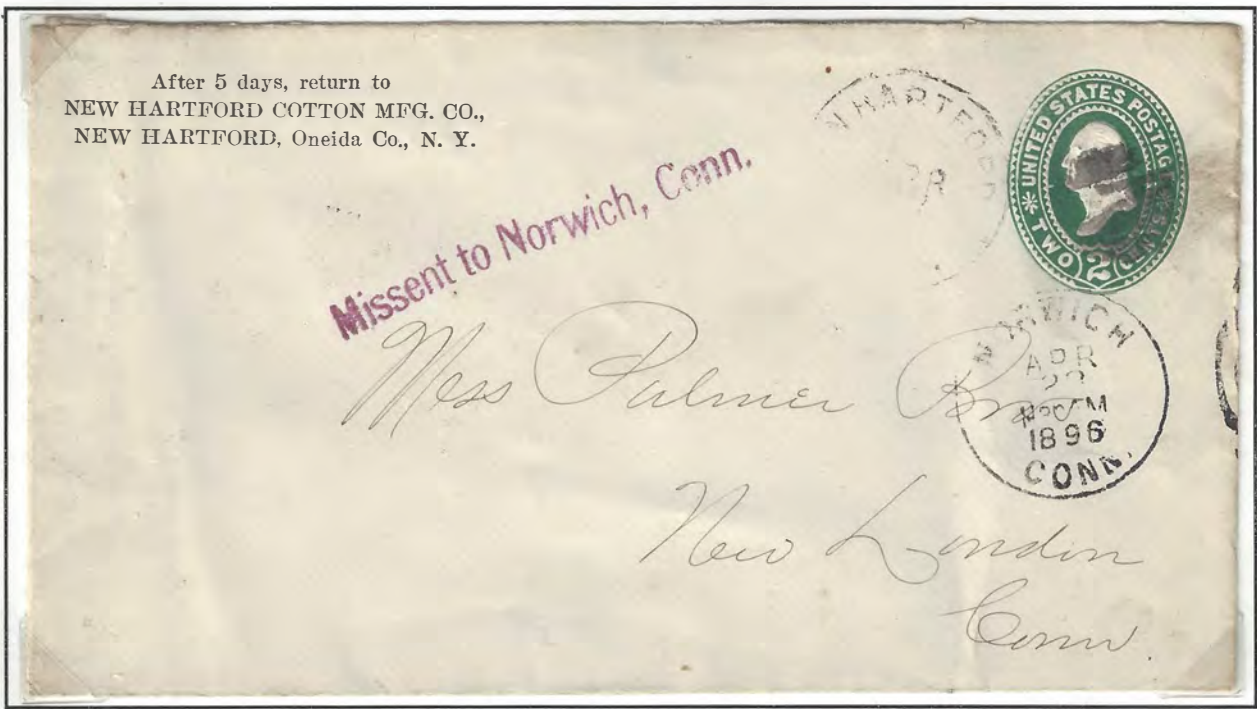 After 5 days, return to
NEW HARTFORD COTTON MFG. CO.,
NEW HARTFORD, Oneida Co., N. Y.
HARTFORD
UNITED STATES POSTAGE
TWO 2 CENTS
Missent to Norwich, Conn.
NORWICH
APR
1896
CONN.
Mess Palmer Bros
New London
Conn.